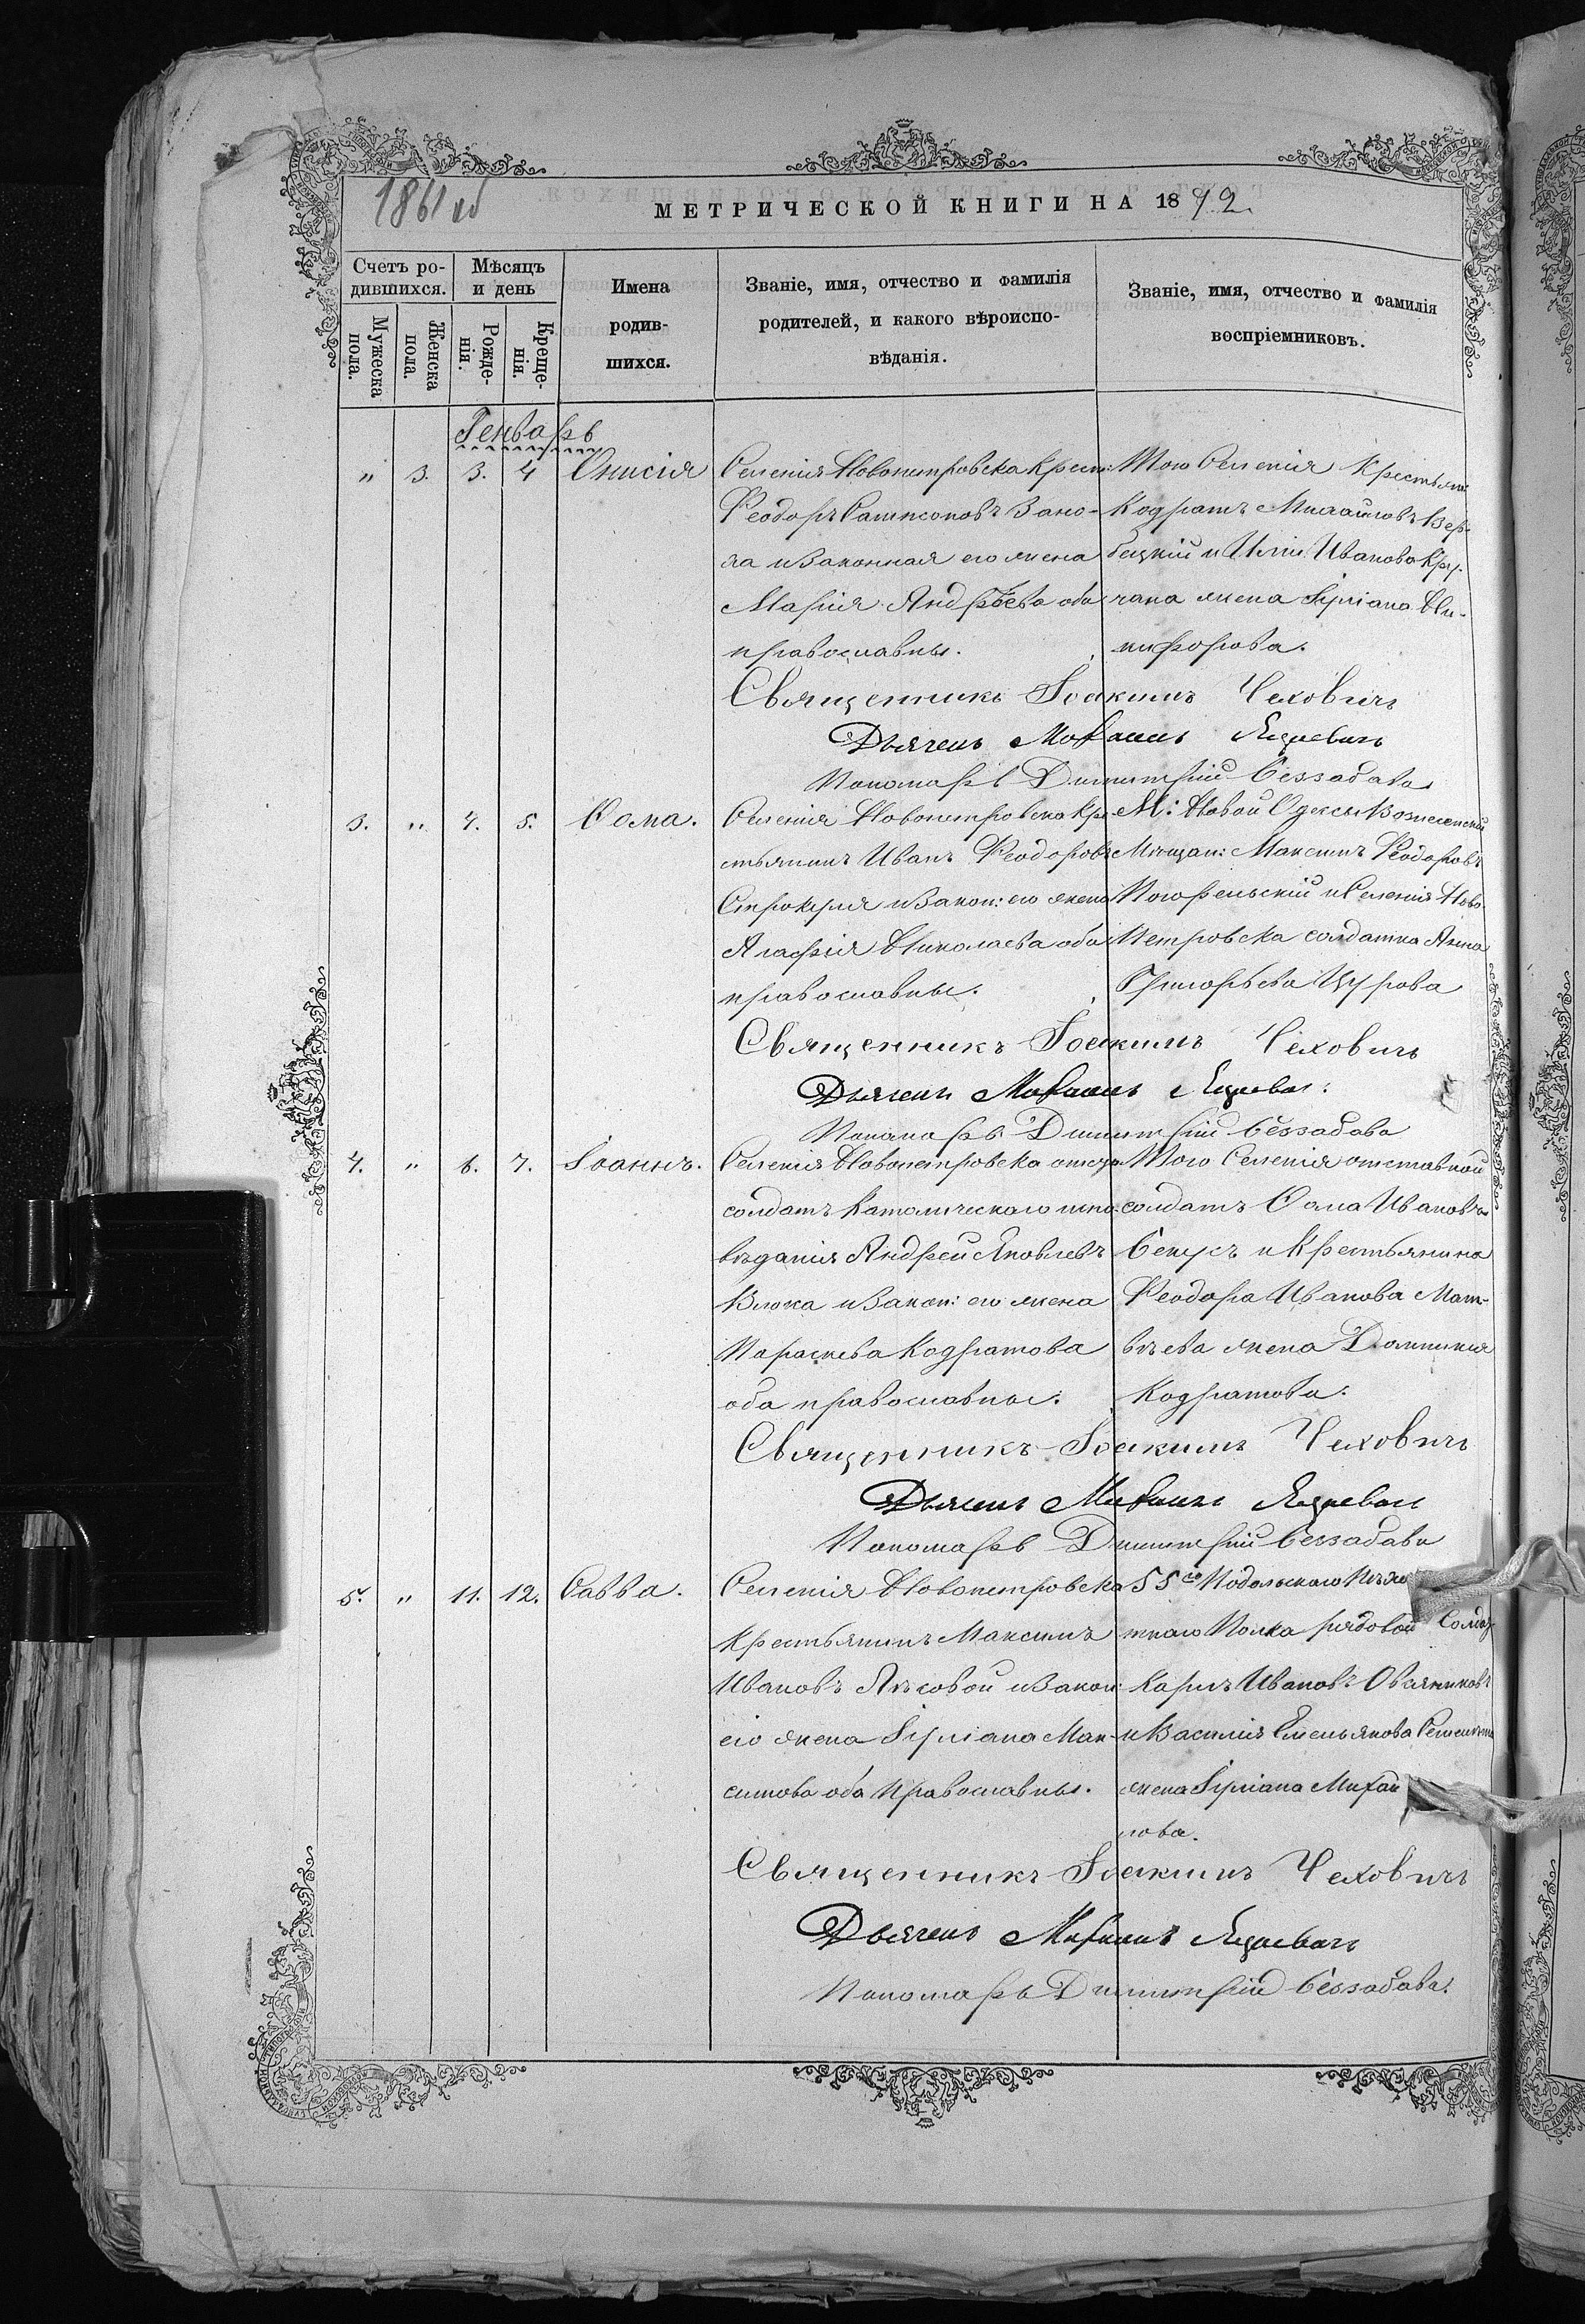 1861 об
МЕТРИЧЕСКОЙ КНИГИ НА 1872.
Счетъ ро-
дившихся.
Мѣсяцъ
и день
Мужеска
пола.
Женска
пола.
Рожде-
нія.
Креще-
нія.
Имена
родив-
шихся.
Званіе, имя, отчество и фамилія
родителей, и какого вѣроиспо-
вѣданія.
Званіе, имя, отчество и фамилія
воспріемниковъ.
Генварь
" 3. 3. 4 Онисія
Селенія Новопетровска Крест:
Феодоръ Самсоновъ
и Законная его жена
Марія Андрѣева оба
православны.
Того Селенія Крестьян:
Кодратъ Михайловъ Вер-
бецкій и Иліи Иванова Кру-
чака жена Іуліана Ни-
кифорова.
Священникъ Іоакимъ Чехович
Дьячекъ Михаилъ
Пономарь Димитрій Беззабава
3. " 4. 5. Фома.
Селенія Новопетровска Кре-
стьянинъ Иванъ Феодоровъ
Строкуля и Закон: его жена
Агафія Николаева оба
православные.
М: Новой Одессы Вознесенскій
Мѣщан: Максимъ Феодоровъ
Погорельскій и Селенія Ново-
Петровска солдатка Анна
Григорьева Щурова
Священникъ Іоакимъ Чехович
Дьячекъ Михаилъ
Пономарь Димитрій Беззабава
4. " 6. 7. Іоаннъ.
Селенія Новопетровска отста
солдатъ Католическаго испо-
вѣданія Андрей Яковлевъ
Влюка и Закон: его жена
Параскева Кодратова
оба православные.
Того Селенія отставной
солдатъ Фома Ивановъ
и Крестьянина
Феодора Иванова Мат-
вѣева жена Домникія
Кодратова.
Священникъ Іоакимъ Чехович
Дьячекъ Михаилъ
Пономарь Димитрій Беззабава
5. " 11. 12. Савва.
Селенія Новопетровска
Крестьянинъ Максимъ
Ивановъ Лѣсовой и Закон:
его жена Іуліана Мак-
симова оба Православны.
55го Подольскаго Пѣхо
тнаго Полка рядовой Солдат
Карпъ Ивановъ Овсяниковъ
и Василія Емельянова
жена Іуліана Михай
лова.
Священникъ Іоакимъ Чехович
Дьячекъ Михаилъ
Пономарь Димитрій Беззабава.